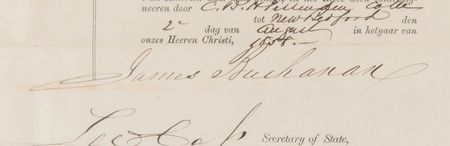 neeren door
tot New Bedford den
2e dag van August in hetyaar van
onzes Heeren Christi, 1858.
James Buchanan
Lew Cass Secretary of State,